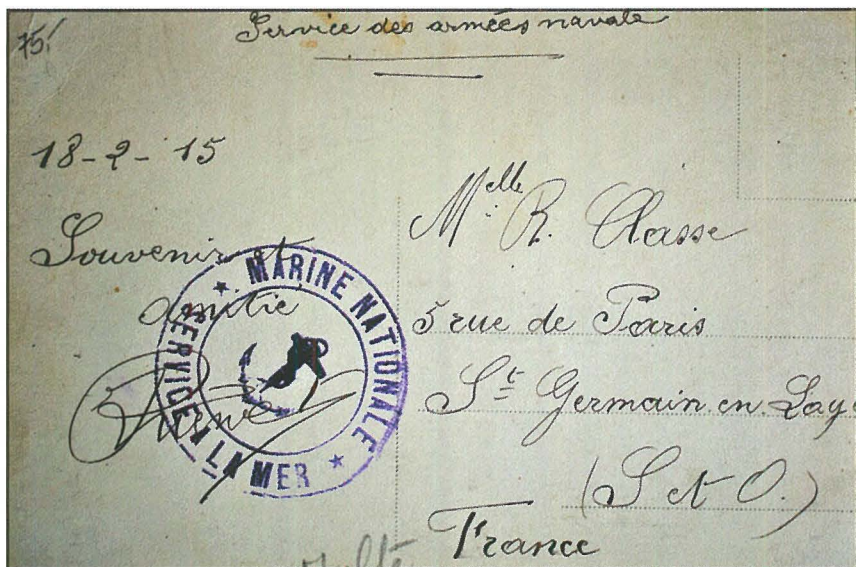 75!
Service des armées navale
18-2-15
Souvenir et
amitié
MARINE NATIONALE
SERVICE A LA MER
Melle R. Classe
5 rue de Paris
St Germain en Lay
(S et O.)
France